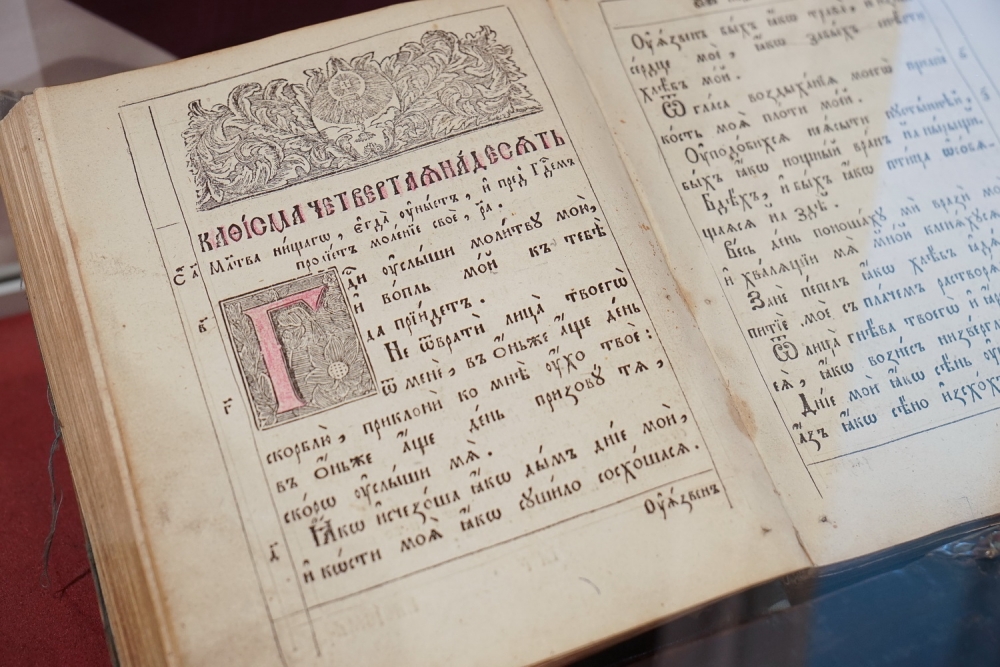 КАѲІСМА ЧЕТВЕРТАѦНА́ДЕСѦТЬ
Мл҃тва ни́щагѡ, є҆гда̀ ᲂу҆ны́етъ, и҆ пред̾ гдⷭ҇емъ
проїе́тъ моле́нїе своѐ, р҃а.
Гдⷭ҇и ᲂу҆слы́ши моли́тву мою̀,
и҆ во́пль мо́й къ тебѣ̀
да прїи́детъ.
Не ѿвратѝ лица̀ твоегѡ̀
ѿ менє̀, въ ѻ҆́ньже а҆́ще де́нь
скорблю̀, приклонѝ ко мнѣ̀ ᲂу҆́хо твоѐ:
въ ѻ҆́ньже а҆́ще де́нь призову́ тѧ,
ско́рѡ ᲂу҆слы́ши мѧ̀.
Ꙗ҆́кѡ и҆счезо́ша ꙗ҆́кѡ ды́мъ дні́е моѝ,
и҆ кѡ́сти моѧ̑ ꙗ҆́кѡ суши́ло сосхо́шасѧ.
Оу҆ѧ́звенъ
с҃
а҃
в҃
г҃
д҃
Оу҆ѧ́звенъ бы́хъ ꙗ҆́кѡ трава̀, и҆
се́рдце моѐ, ꙗ҆́кѡ забы́хъ снѣ́сти
хлѣ́бъ мо́й.
Ѿ гла́са воздыха́нїѧ моегѡ̀
ко́сть моѧ̀ пло́ти мое́й.
Оу҆подо́бихсѧ неѧ́сыти пусты́ннѣй,
бы́хъ ꙗ҆́кѡ нощны́й вра́нъ на ны́рищи.
Бдѣ́хъ, и҆ бы́хъ ꙗ҆́кѡ пти́ца ѻ҆со́бѧ-
щаѧсѧ на здѣ̀.
Ве́сь де́нь поноша́ху мѝ вразѝ моѝ
и҆ хвалѧ́щїи мѧ̀ мно́ю кленѧ́хусѧ
Занѐ пе́пелъ ꙗ҆́кѡ хлѣ́бъ ꙗ҆дѧ́
питїѐ моѐ съ пла́чемъ растворѧ́
Ѿ лица̀ гнѣ́ва твоегѡ̀
ꙗ҆́кѡ возне́съ низве́рг
Дні́е моѝ ꙗ҆́кѡ сѣ́нь
а҆́зъ ꙗ҆́кѡ сѣ́но и҆зсхо́